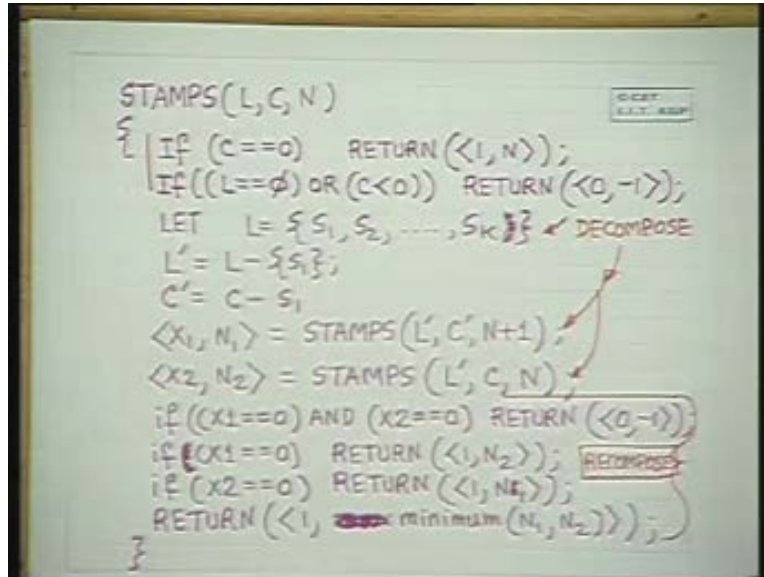 STAMPS(L, C, N)
©CET
I.I.T. KGP
{ If (C==0) RETURN(<1, N>);
If((L==φ) OR (C<0)) RETURN(<0, -1>);
LET L= {S1, S2, ...., SK} DECOMPOSE
L'= L-{S1};
C'= C- S1
<X1, N1> = STAMPS(L', C', N+1);
<X2, N2> = STAMPS(L', C, N);
if((X1==0) AND (X2==0) RETURN(<0,-1>);
if(X1==0) RETURN(<1,N2>); RECOMPOSE
if (X2==0) RETURN(<1,N1>);
RETURN(<1, minimum(N1, N2)>);
}